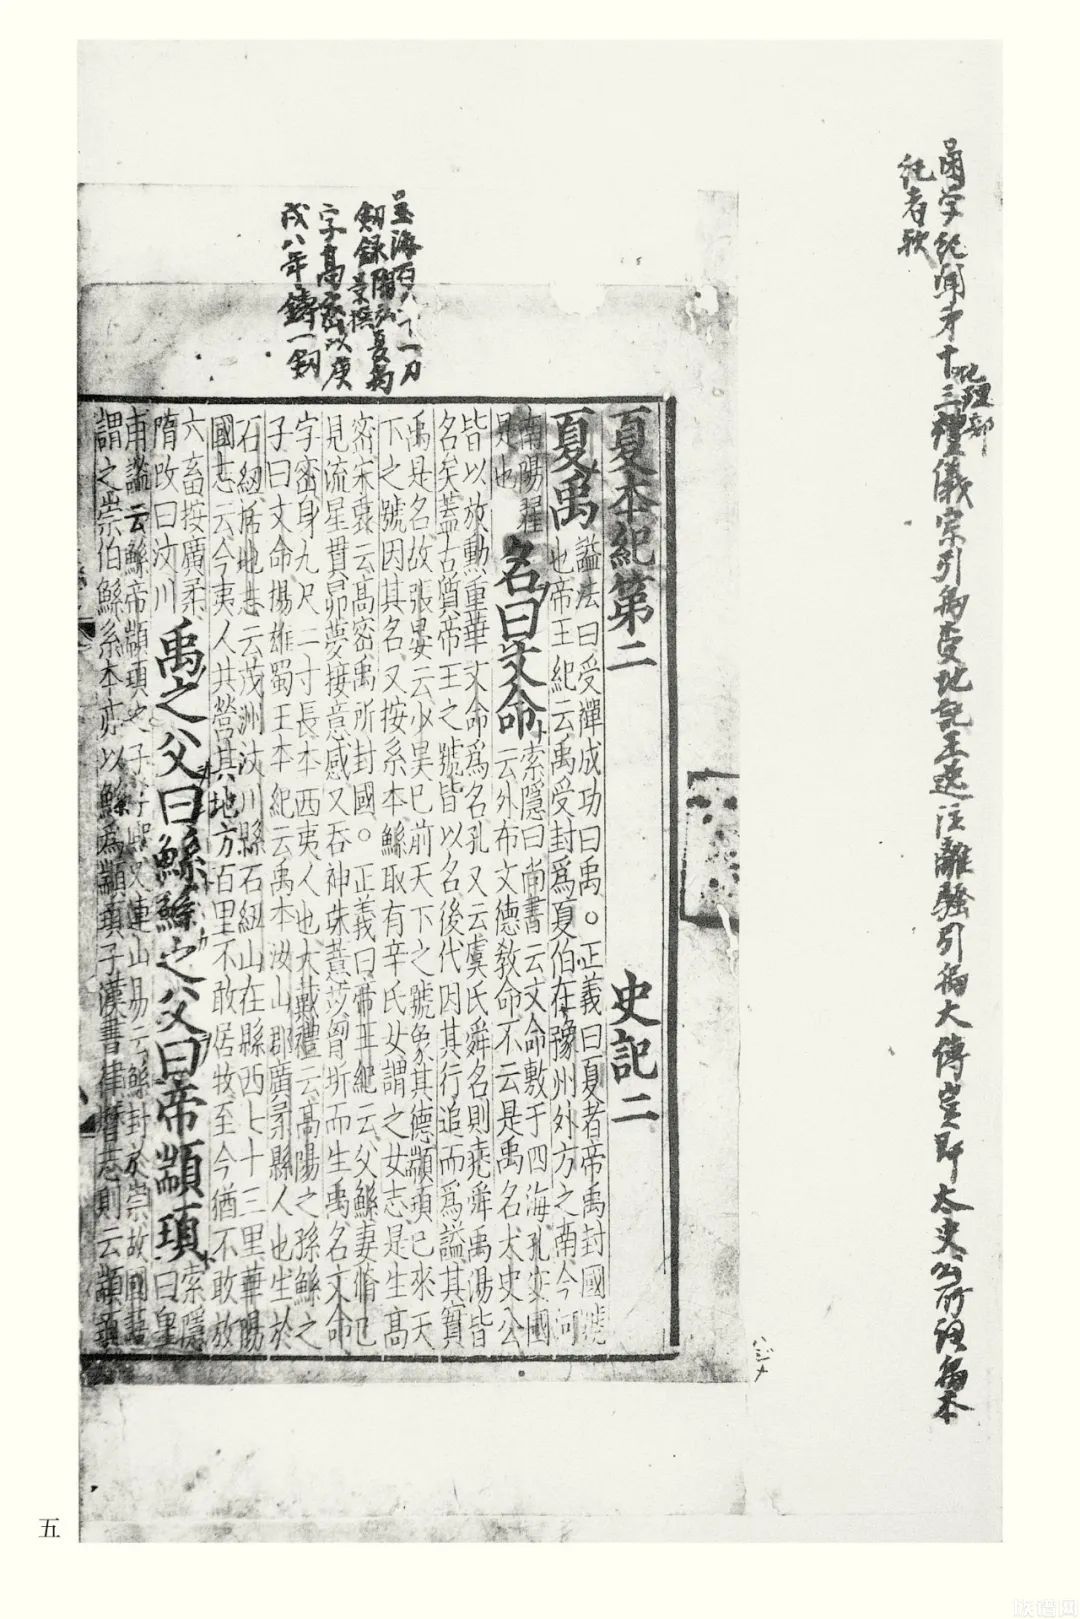 困学紀聞才十三禮儀宗引禹受地記王逸注離騷引禹大傳豈即太史公所謂禹本
紀者歟
呈海百八丁一刀
剱録陶弘景撰夏禹
字高密以庚
戌八年鑄一剱
夏本紀第二 史記二
夏禹 謚法曰受禪成功曰禹。正義曰夏者帝禹封國號
也帝王紀云禹受封爲夏伯在豫州外方之南今河
南陽翟
是也 名曰文命 索隱曰尚書云文命敷于四海孔安國
云外布文德教命不云是禹名太史公
皆以放勛重華文命爲名孔又云虞氏舜名則堯舜禹湯皆
名矣蓋古質帝王之號皆以名後代因其行追而爲謚其實
禹是名故張晏云少昊已前天下之號象其德顓頊已來天
下之號因其名又按系本鯀取有辛氏女謂之女志是生高
密宋衷云高密禹所封國。正義曰帝王紀云父鯀妻脩己
見流星貫昴夢接意感又吞神珠薏苡胷坼而生禹名文命
字密身九尺二寸長本西夷人也大戴禮云高陽之孫鯀之
子曰文命揚雄蜀王本紀云禹本汶山郡廣柔縣人也生於
石紐括地志云茂州汶川縣石紐山在縣西七十三里華陽
國志云今夷人共營其地方百里不敢居牧至今猶不敢放
六畜按廣柔
隋改曰汶川 禹之父曰鯀鯀之父曰帝顓頊 索隱
曰皇
甫謐云鯀帝顓頊之子字熙又連山易云鯀封於崇故國語
謂之崇伯鯀系本亦以鯀爲顓頊子漢書律曆志則云顓頊
五
族谱网